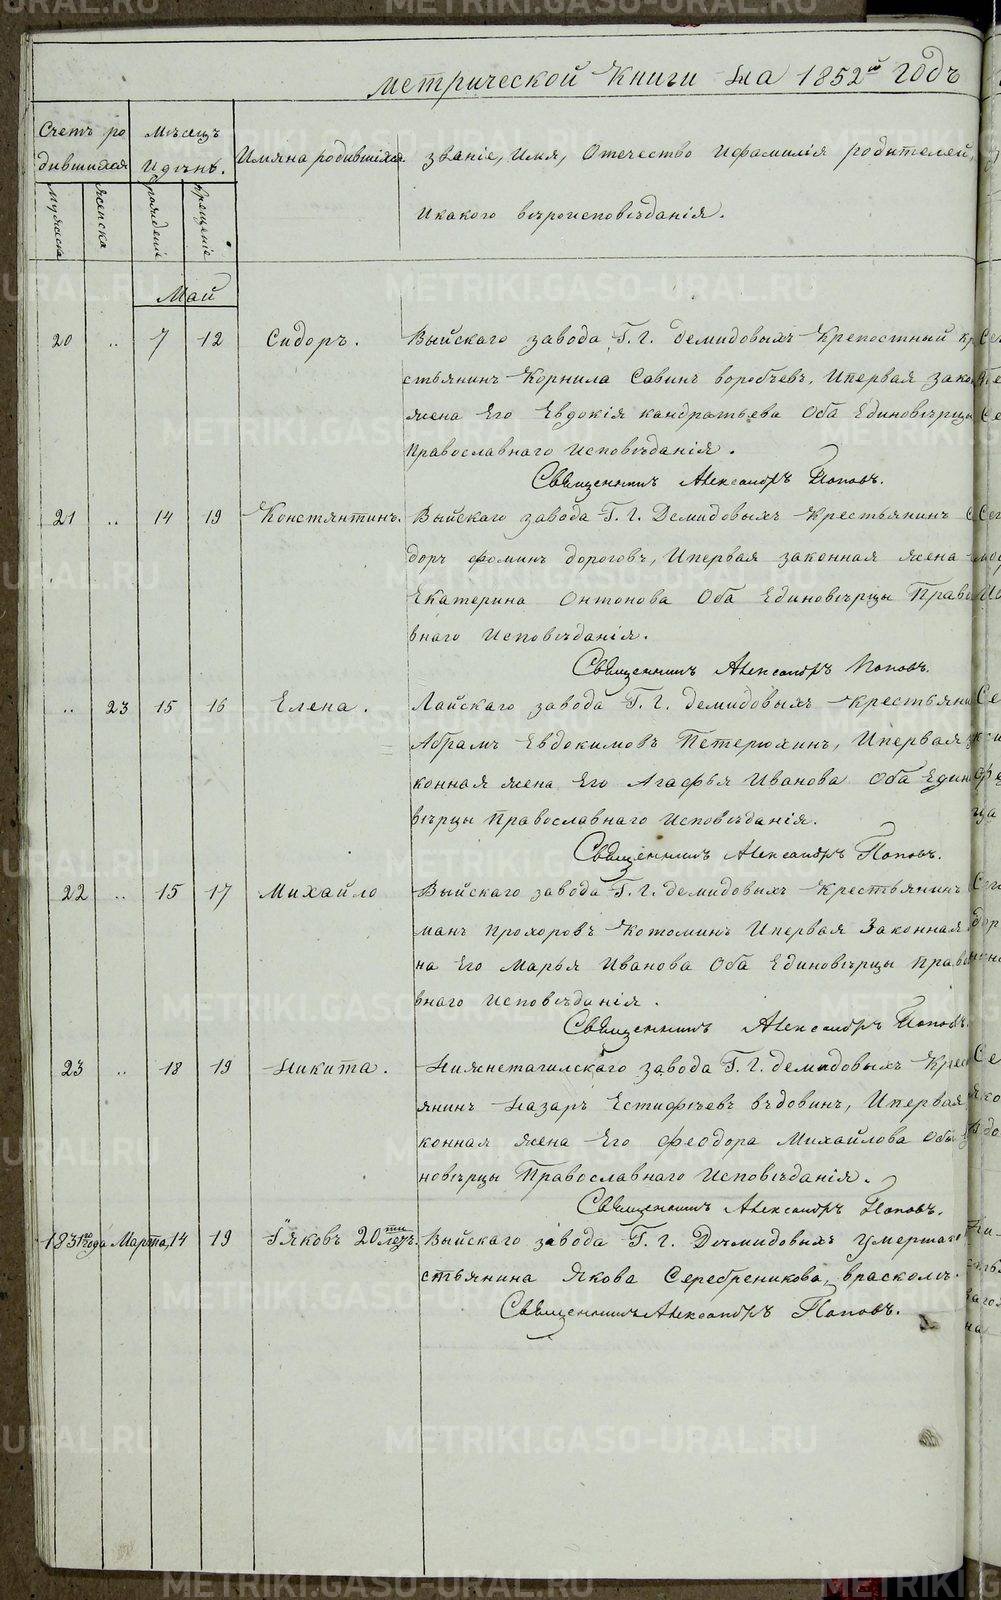 метрической Книги на 1852й годъ
Счетъ ро
дившихся
Мѣсяцъ
и день.
Имяна родившихся.
званіе, Имя, Отечество и фамилія родителей,
и какого вѣроисповѣданія.
мужеска
женска
рожденія
крещенія
Май
20 .. 7 12 Сидоръ. Выйскаго завода Г. Г. демидовыхъ крепостный
стьянинъ Корнила Савинъ воробьевъ, и первая
жена Его Евдокія кандратьева Оба Единовѣрцы
православнаго исповѣданія.
Священникъ Александръ Поповъ.
21 .. 14 19 Констянтинъ. Выйскаго завода Г. Г. Демидовыхъ крестьянинъ
доръ фоминъ дороговъ, и первая законная жена
Екатерина Онтонова Оба Единовѣрцы
внаго исповѣданія.
Священникъ Александръ Поповъ.
.. 23 15 16 Елена. Лайскаго завода Г. Г. демидовыхъ
Абрамъ Евдокимовъ Петерюхинъ, и первая
конная жена Его Агафья Иванова Оба
вѣрцы православнаго исповѣданія.
Священникъ Александръ Поповъ.
22 .. 15 17 Михайло Выйскаго завода Г. Г. демидовыхъ крестьянинъ
манъ прохоровъ Котоминъ и первая Законная
на Его Марья Иванова Оба Единовѣрцы
внаго исповѣданія.
Священникъ Александръ Поповъ.
23 .. 18 19 Никита. Нижнетагилскаго завода Г. Г. демидовыхъ
янинъ Назаръ Естифѣевъ вдовинъ, и первая
конная жена Его феодора Михайлова Оба
новѣрцы Православнаго исповѣданія.
Священникъ Александръ Поповъ.
1831го года Марта, 14 19 Іяковъ 20ти летъ. Выйскаго завода Г. Г. Демидовыхъ умершаго
стьянина Якова Серебреникова, врасколѣ.
Священникъ Александръ Поповъ.
METRIKI.GASO-URAL.RU